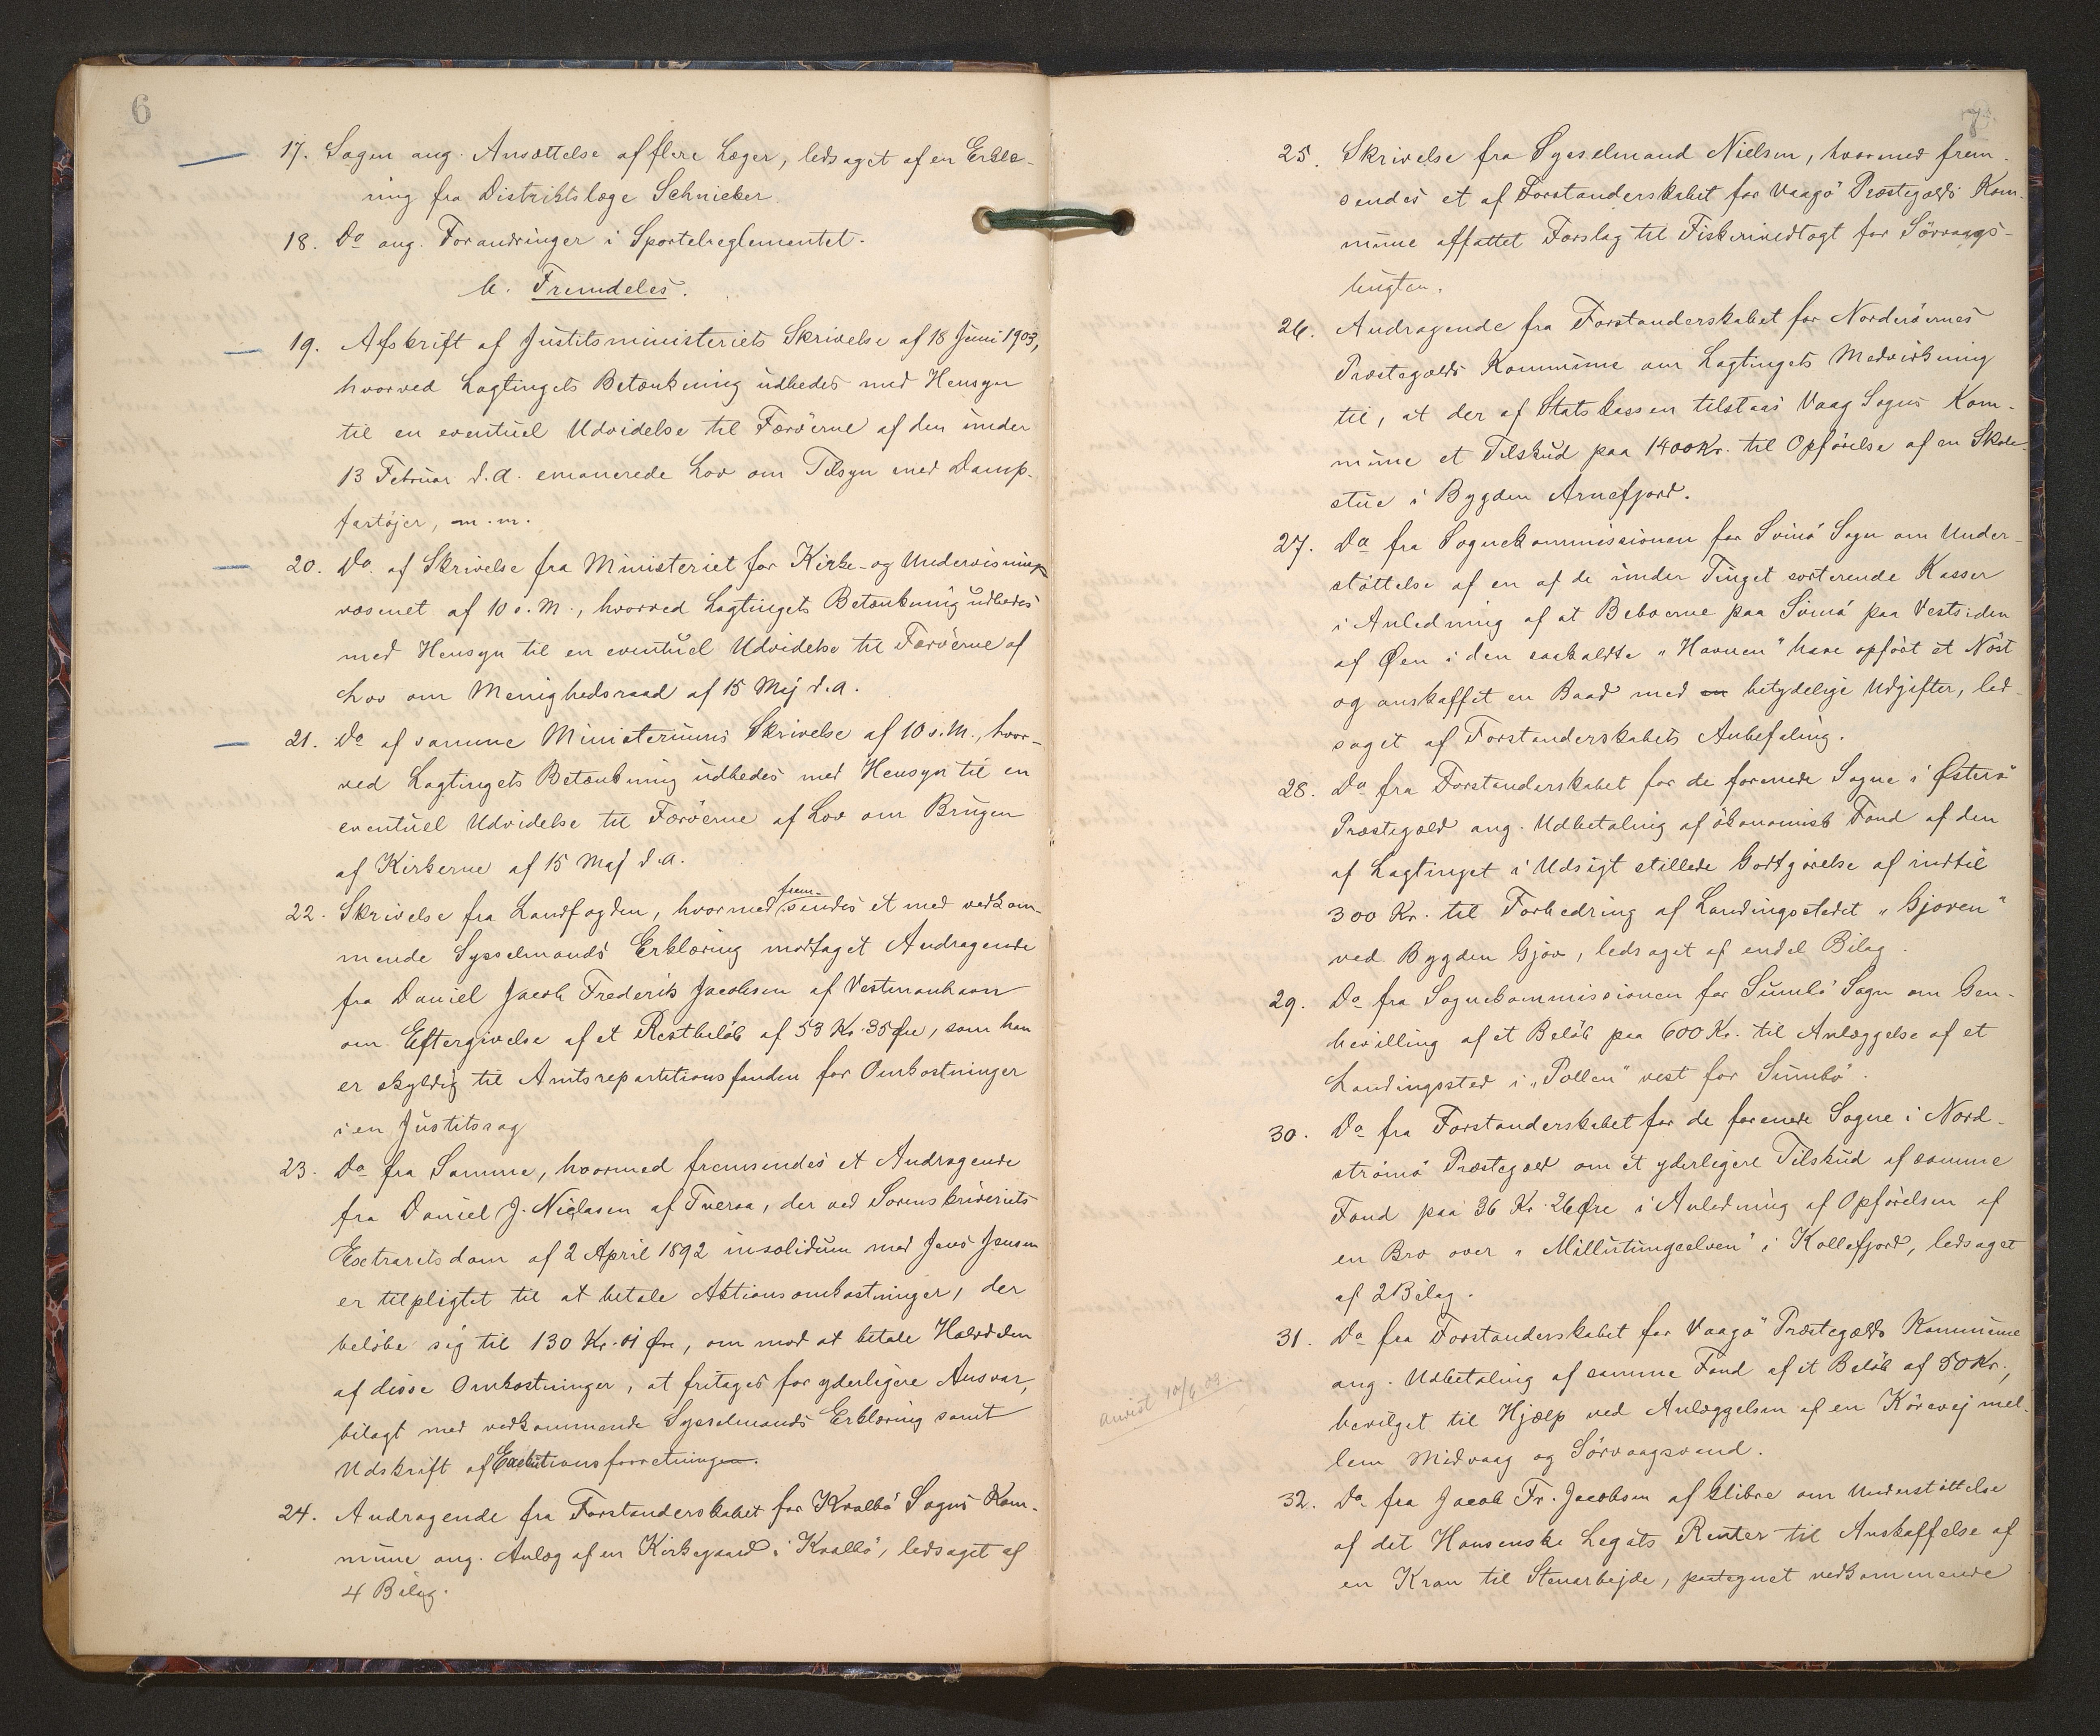 6
17. Sagen ang. Ansættelse af flere Læger, ledsaget af en Erklæ-
ring fra Distriktslæge Schnieber
18. Do ang. Forandringer i Sportelreglementet.
b. Fremdeles.
19. Afskrift af Justitsministeriets Skrivelse af 18 Juni 1903,
hvorved Lagtingets Betænkning udbedes med Hensyn
til en eventuel Udvidelse til Færöerne af den under
13 Februar d.A. emanerede Lov om Tilsyn med Damp-
fartöjer, m.m.
20. Do af Skrivelse fra Ministeriet for Kirke- og Undervisnings-
væsenet af 10 s.M., hvorved Lagtingets Betænkning udbedes
med Hensyn til en eventuel Udvidelse til Færöerne af
Lov om Menighedsraad af 15 Maj d.A.
21. Do af samme Ministeriums Skrivelse af 10 s.M., hvor-
ved Lagtingets Betænkning udbedes med Hensyn til en
eventuel Udvidelse til Færöerne af Lov om Brugen
af Kirkerne af 15 Maj d.A.
22. Skrivelse fra Landfogden, hvormed frem-sendes et med vedkom-
mende Sysselmands Erklæring modtaget Andragende
fra Daniel Jacob Frederik Jacobsen af Vestmanhavn
om Eftergivelse af et Restbelöb af 53 Kr. 35 Øre, som han
er skyldig til Amtsrepartitionsfonden for Omkostninger
i en Justitssag
23. Do fra Samme, hvormed fremsendes et Andragende
fra Daniel J. Niclasen af Tveraa, der ved Sorenskriveriets
Extraretsdom af 2 April 1892 insolidum med Jens Jensen
er tilpligtet til at betale Aktionsomkostninger, der
belöbe sig til 130 Kr. 01 Øre, om mod at betale Halvdelen
af disse Omkostninger, at fritages for yderligere Ansvar,
bilagt med vedkommende Sysselmands Erklæring samt
Udskrift af Exekutionsforretningen.
24. Andragende fra Forstanderskabet for Kvalbö Sogns Kom-
mune ang. Anlæg af en Kirkegaard i Kvalbö, ledsaget af
4 Bilag.
7
25. Skrivelse fra Sysselmand Nielsen, hvormed frem-
sendes et af Forstanderskabet for Vaagö Præstegælds Kom-
mune affattet Forslag til Fiskerivedtægt for Sörvaags-
bugten.
26. Andragende fra Forstanderskabet for Norderöernes
Præstegælds Kommune om Lagtingets Medvirkning
til, at der af Statskassen tilstaas Vaag Sogns Kom-
mune et Tilskud paa 1400 Kr. til Opförelse af en Skole-
stue i Bygden Arnefjord.
27. Do fra Sognekommissionen for Svinö Sogn om Under-
stöttelse af en af de under Tinget sorterende Kasser
i Anledning af at Beboerne paa Svinö paa Vestsiden
af Øen i den saakaldte "Havnen" have opfört et Nöst
og anskaffet en Baad med en betydelige Udgifter, led-
saget af Forstanderskabets Anbefaling.
28. Do fra Forstanderskabet for de forenede Sogne i Österö
Præstegæld ang. Udbetaling af ökonomisk Fond af den
af Lagtinget i Udsigt stillede Godtgörelse af indtil
300 Kr. til Forbedring af Landingsstedet "Gjoven"
ved Bygden Gjov, ledsaget af endel Bilag.
29. Do fra Sognekommissionen for Sumbö Sogn om Gen-
bevilling af et Belöb paa 600 Kr. til Anlæggelse af et
Landingssted i "Pollen" vest for Sumbö.
30. Do fra Forstanderskabet for de forenede Sogne i Nord-
strömö Præstegæld om et yderligere Tilskud af samme
Fond paa 36 Kr. 26 Øre i Anledning af Opförelsen af
en Bro over "Millutungaelven" i Kollefjord, ledsaget
af 2 Bilag.
31. Do fra Forstanderskabet for Vaagö Præstegælds Kommune
ang. Udbetaling af samme Fond af et Belöb af 50 Kr.,
bevilget til Hjælp ved Anlæggelsen af en Körevej mel-
lem Midvaag og Sörvaagsvand.
anvist 10/9 09.
32. Do fra Jacob Fr. Jacobsen af Glibre om Understöttelse
af det Hansenske Legats Renter til Anskaffelse af
en Kran til Stenarbejde, paategnet vedkommende